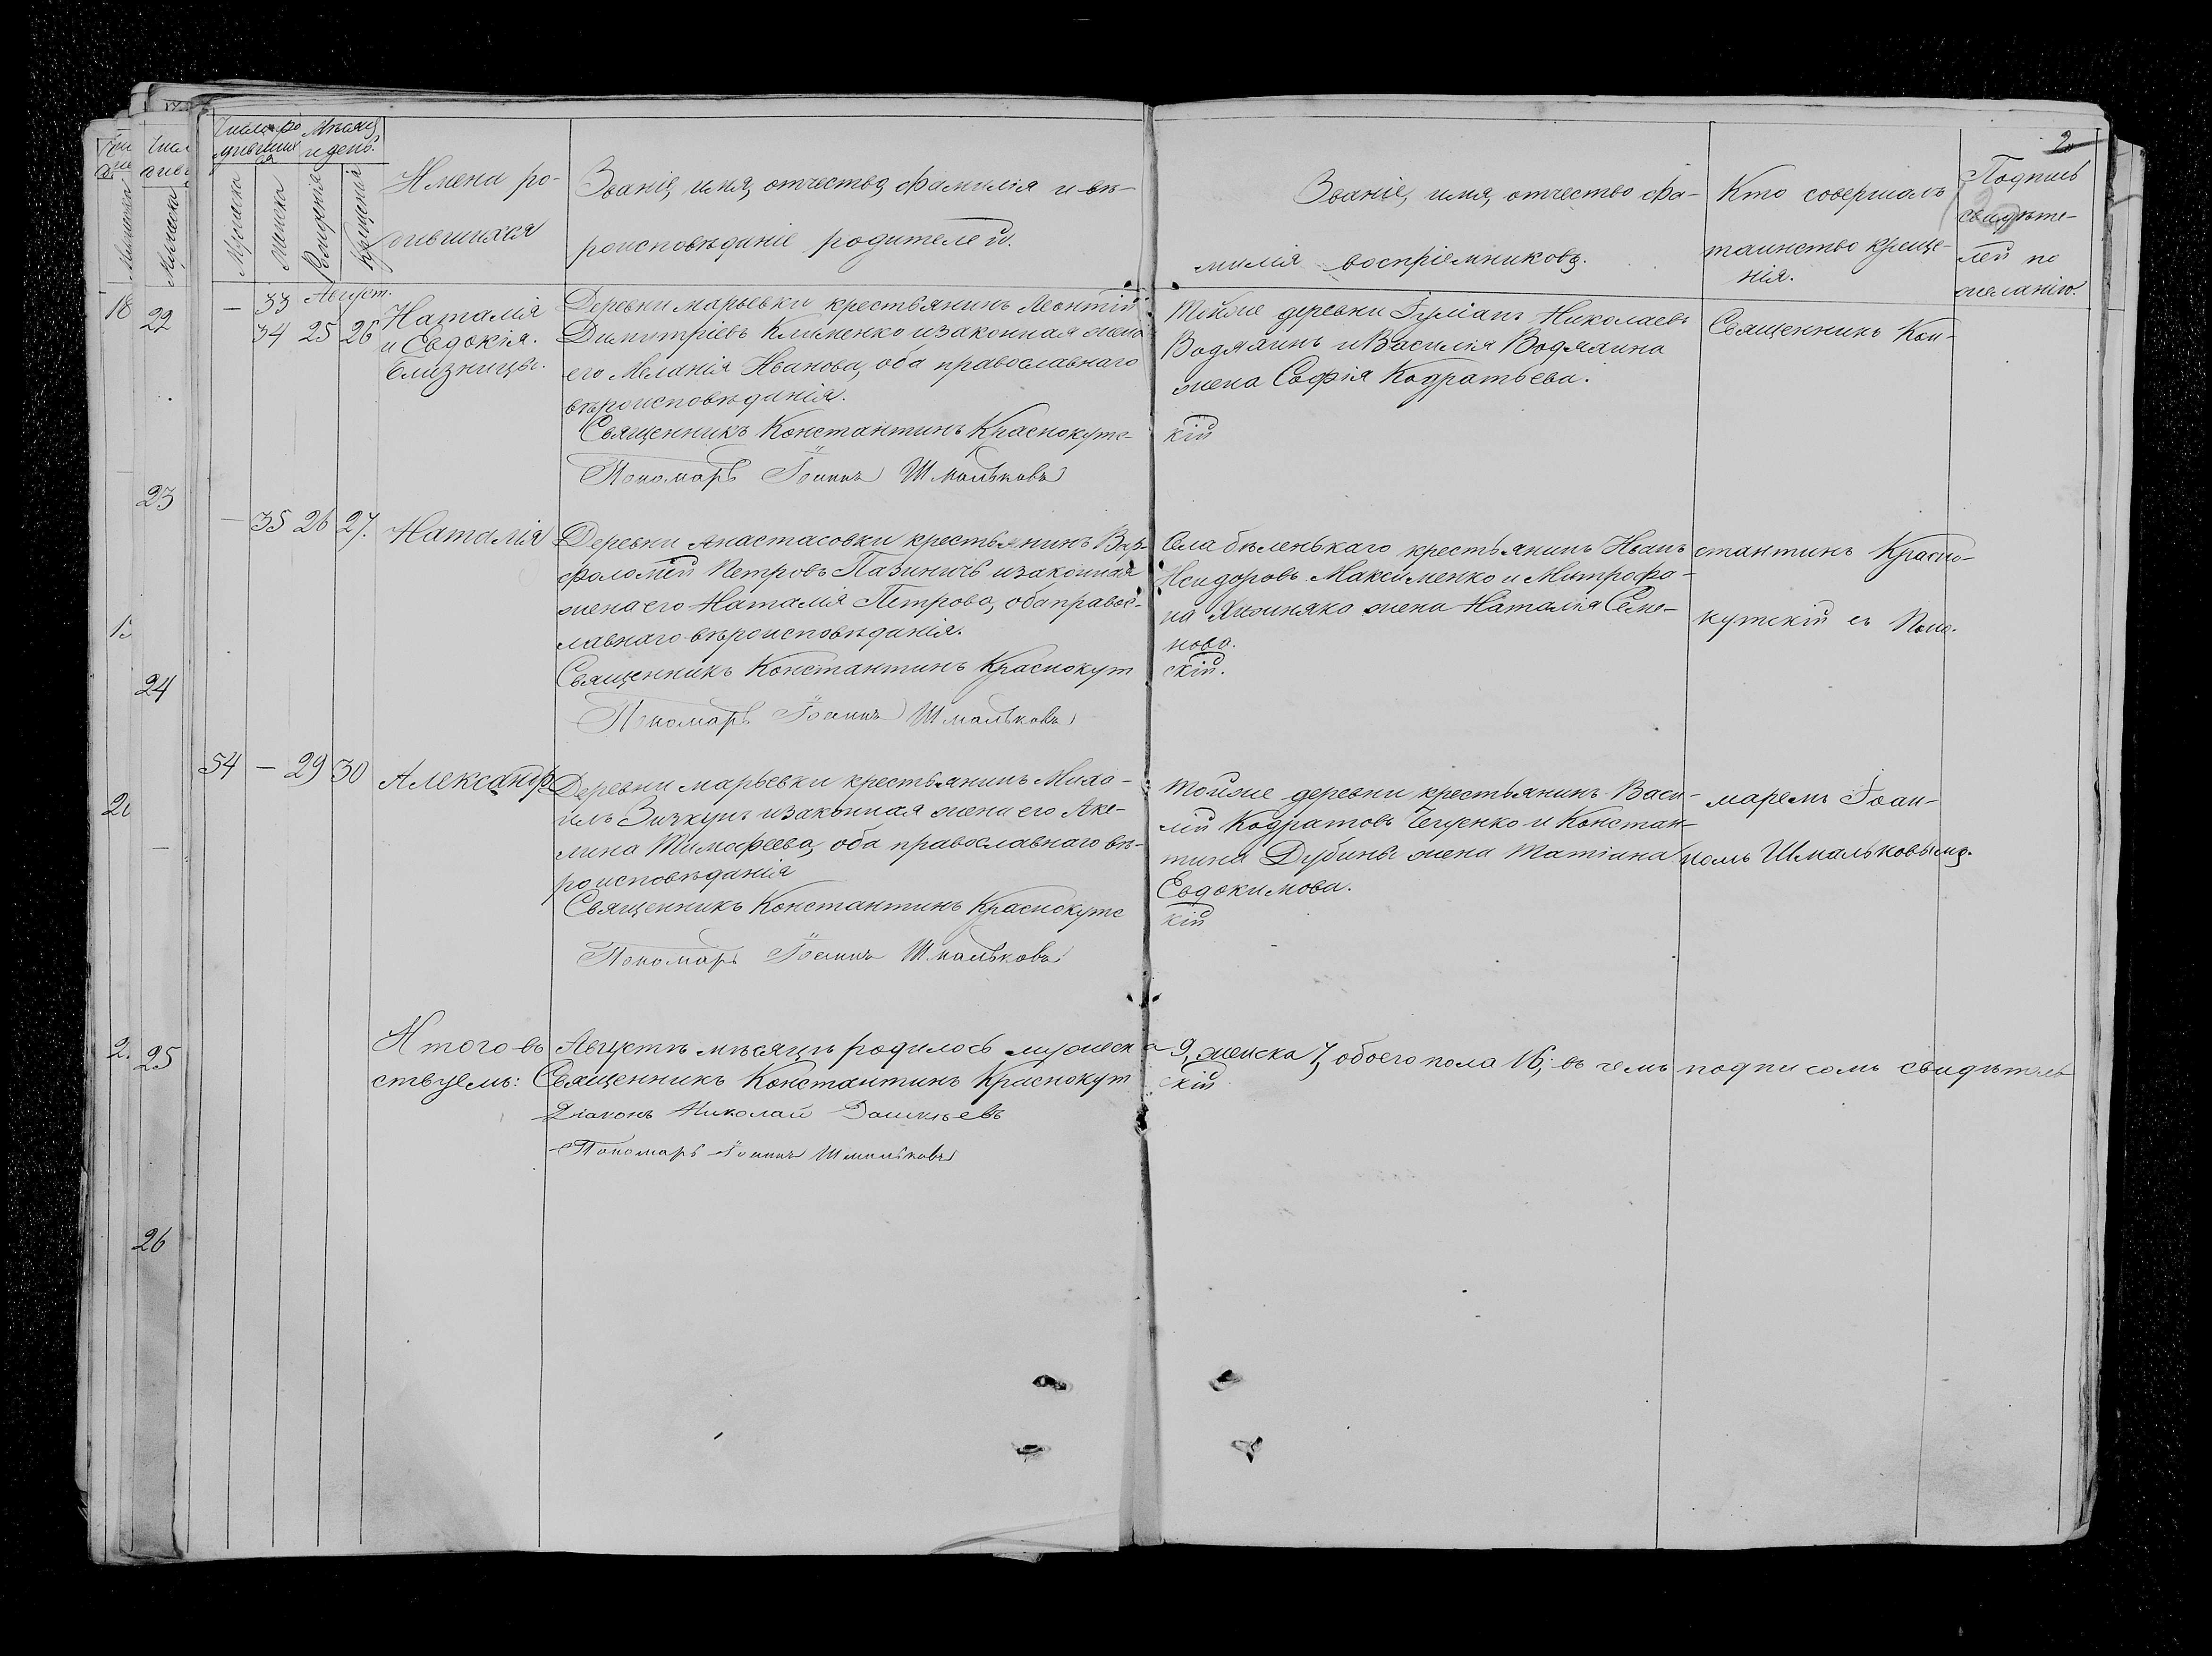 Число ро-
дившихся
Мѣсяцъ
и день.
Мужеска
Женска
Рожденія
Крещенія
Имена ро-
дившихся
Званіе, имя, отчество, фамилія и вѣ-
роисповѣданіе родителей.
Званіе, имя, отчество фа-
милія воспріемниковъ.
Кто совершалъ
таинство креще-
нія.
Подпись
свидѣте-
лей по
желанію.
Август.
— 33
34 25 26
Наталія
и Евдокія.
близницы.
Деревни Марьевки крестьянинъ Леонтій
Димитріевъ Клименко и законная жена
его Меланія Иванова, оба православнаго
вѣроисповѣданія.
Священникъ Константинъ Краснокутс-
кій
Пономарь Іоаннъ Шмальковъ
Тойже деревни Іуліанъ Николаевъ
Водялинъ и Василія Водялина
жена Софія Кодратьева.
Священникъ Кон-
— 35 26 27.
Наталія
Деревни Анастасовки крестьянинъ Вар-
фоломей Петровъ Пазиничъ и законная
жена его Наталія Петрова, оба правос-
лавнаго вѣроисповѣданія.
Священникъ Константинъ Краснокут
скій.
Пономарь Іоаннъ Шмальковъ
Села Бѣленькаго крестьянинъ Иванъ
Исидоровъ Максименко и Митрофа-
на жена Наталія Семе-
нова.
стантинъ Красно-
кутскій съ Поно-
54 — 29 30
Александръ
Деревни Марьевки крестьянинъ Миха-
илъ Зизкунъ и законная жена его Аке-
лина Тимофеева, оба православнаго вѣ-
роисповѣданія
Священникъ Константинъ Краснокутс
кій
Пономарь Іоаннъ Шмальковъ
Тойже деревни крестьянинъ Васи-
лій Кодратовъ и Констан-
тина Дубины жена Матіана
Евдокимова.
маремъ Іоан-
номъ Шмальковымъ.
Итого въ Августѣ мѣсяцѣ родилось мужеска 9, женска 7, обоего пола 16; въ чемъ подписомъ свидѣтель
ствуемъ: Священникъ Константинъ Краснокут скій
Діаконъ Николай
Пономарь Іоаннъ Шмальковъ
18
22
23
24
25
26